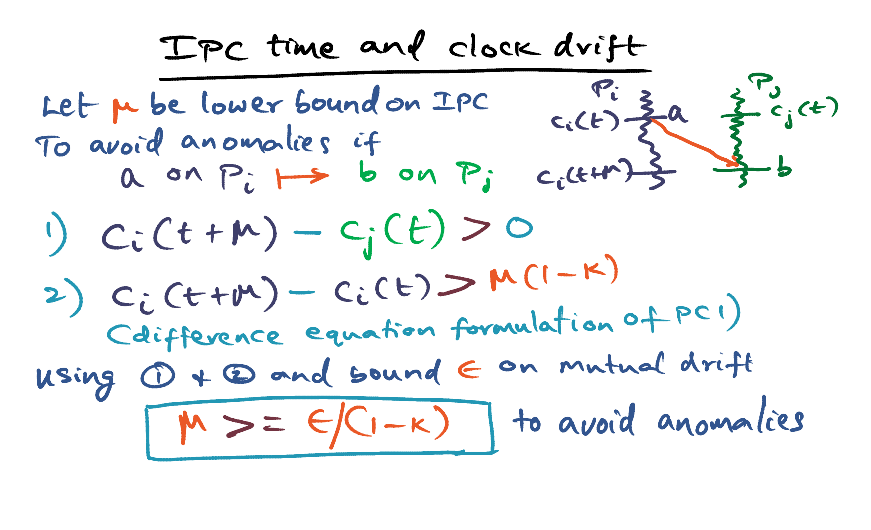 IPC time and clock drift
Let μ be lower bound on IPC
To avoid anomalies if
a on Pi ↦ b on Pj
Pi
Ci(t) a
Ci(t+μ)
Pj
Cj(t)
b
1) Ci(t+μ) - Cj(t) > 0
2) Ci(t+μ) - Ci(t) > μ(1-K)
(difference equation formulation of PC1)
using ① + ② and bound ∈ on mutual drift
μ >= ∈/(1-K) to avoid anomalies